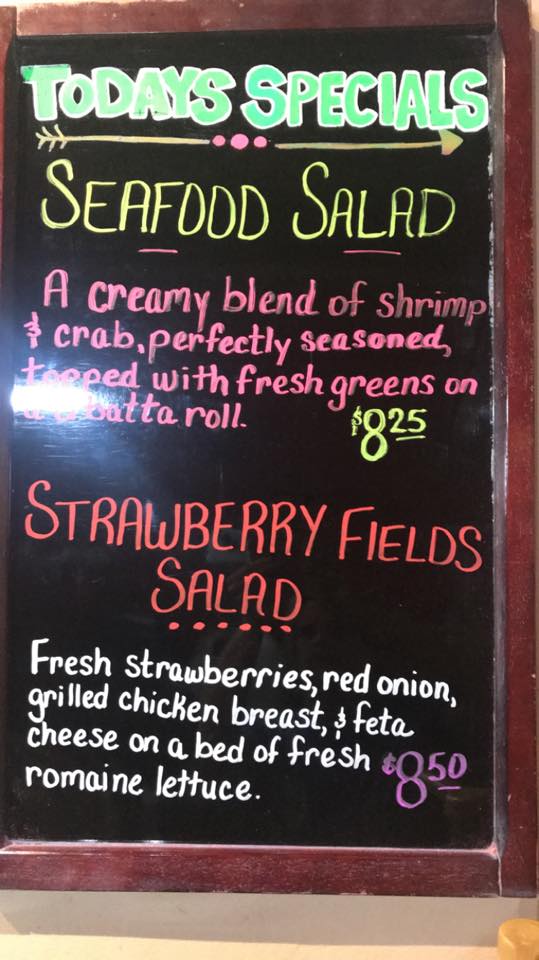 TODAYS SPECIALS
SEAFOOD SALAD
A creamy blend of shrimp
& crab, perfectly seasoned,
topped with fresh greens on
a ciabatta roll.
$8.25
STRAWBERRY FIELDS
SALAD
Fresh strawberries, red onion,
grilled chicken breast, & feta
cheese on a bed of fresh
romaine lettuce.
$8.50